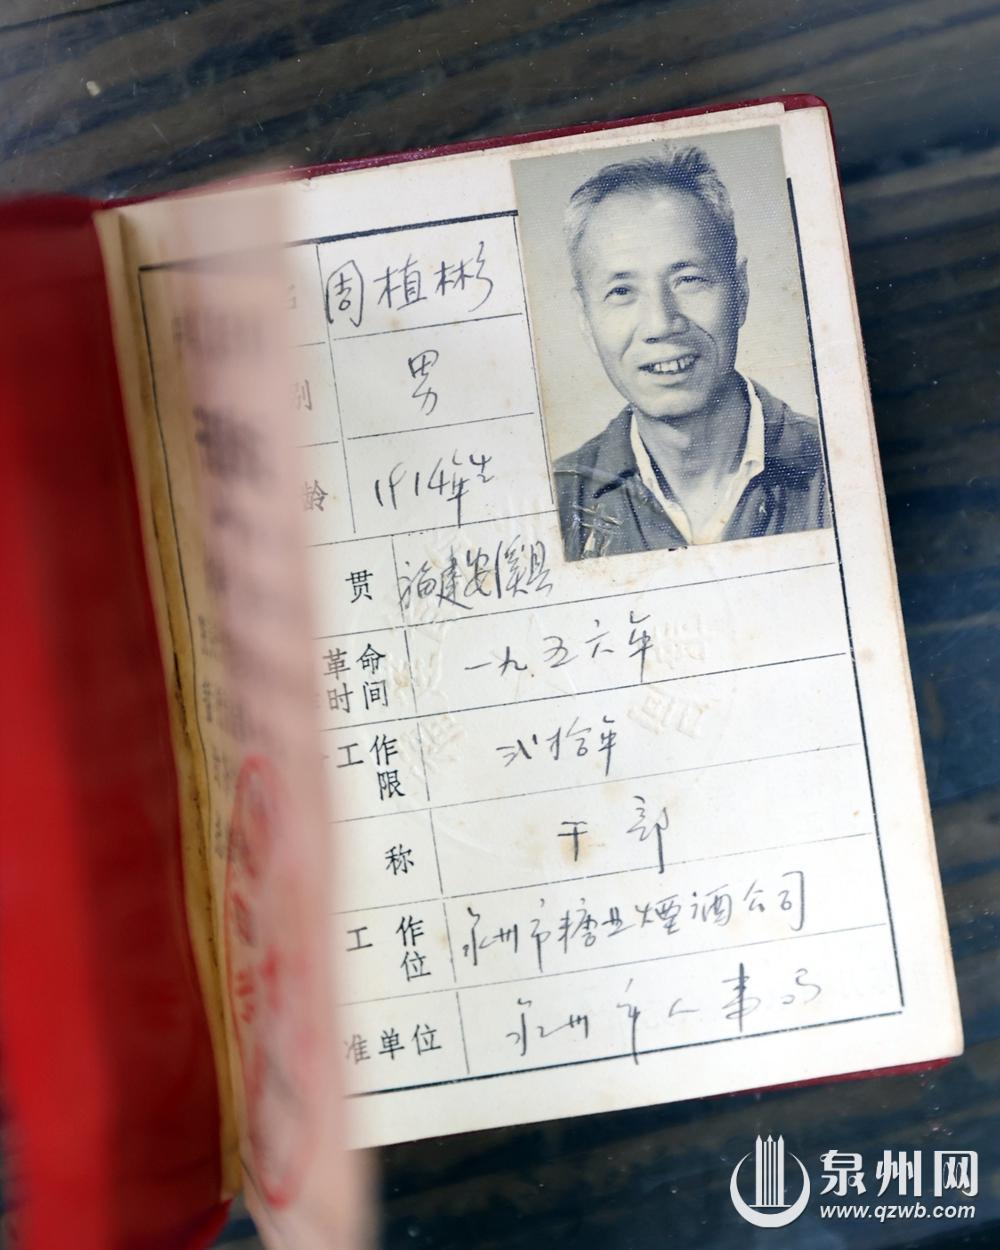 名 周植彬
别 男
龄 1914年生
贯 福建安溪县
革命 一九五六年
时间
工作 弍拾年
限
称 干部
工作 泉州市糖业烟酒公司
位
准单位 泉州市人事局
泉州网
www.qzwb.com